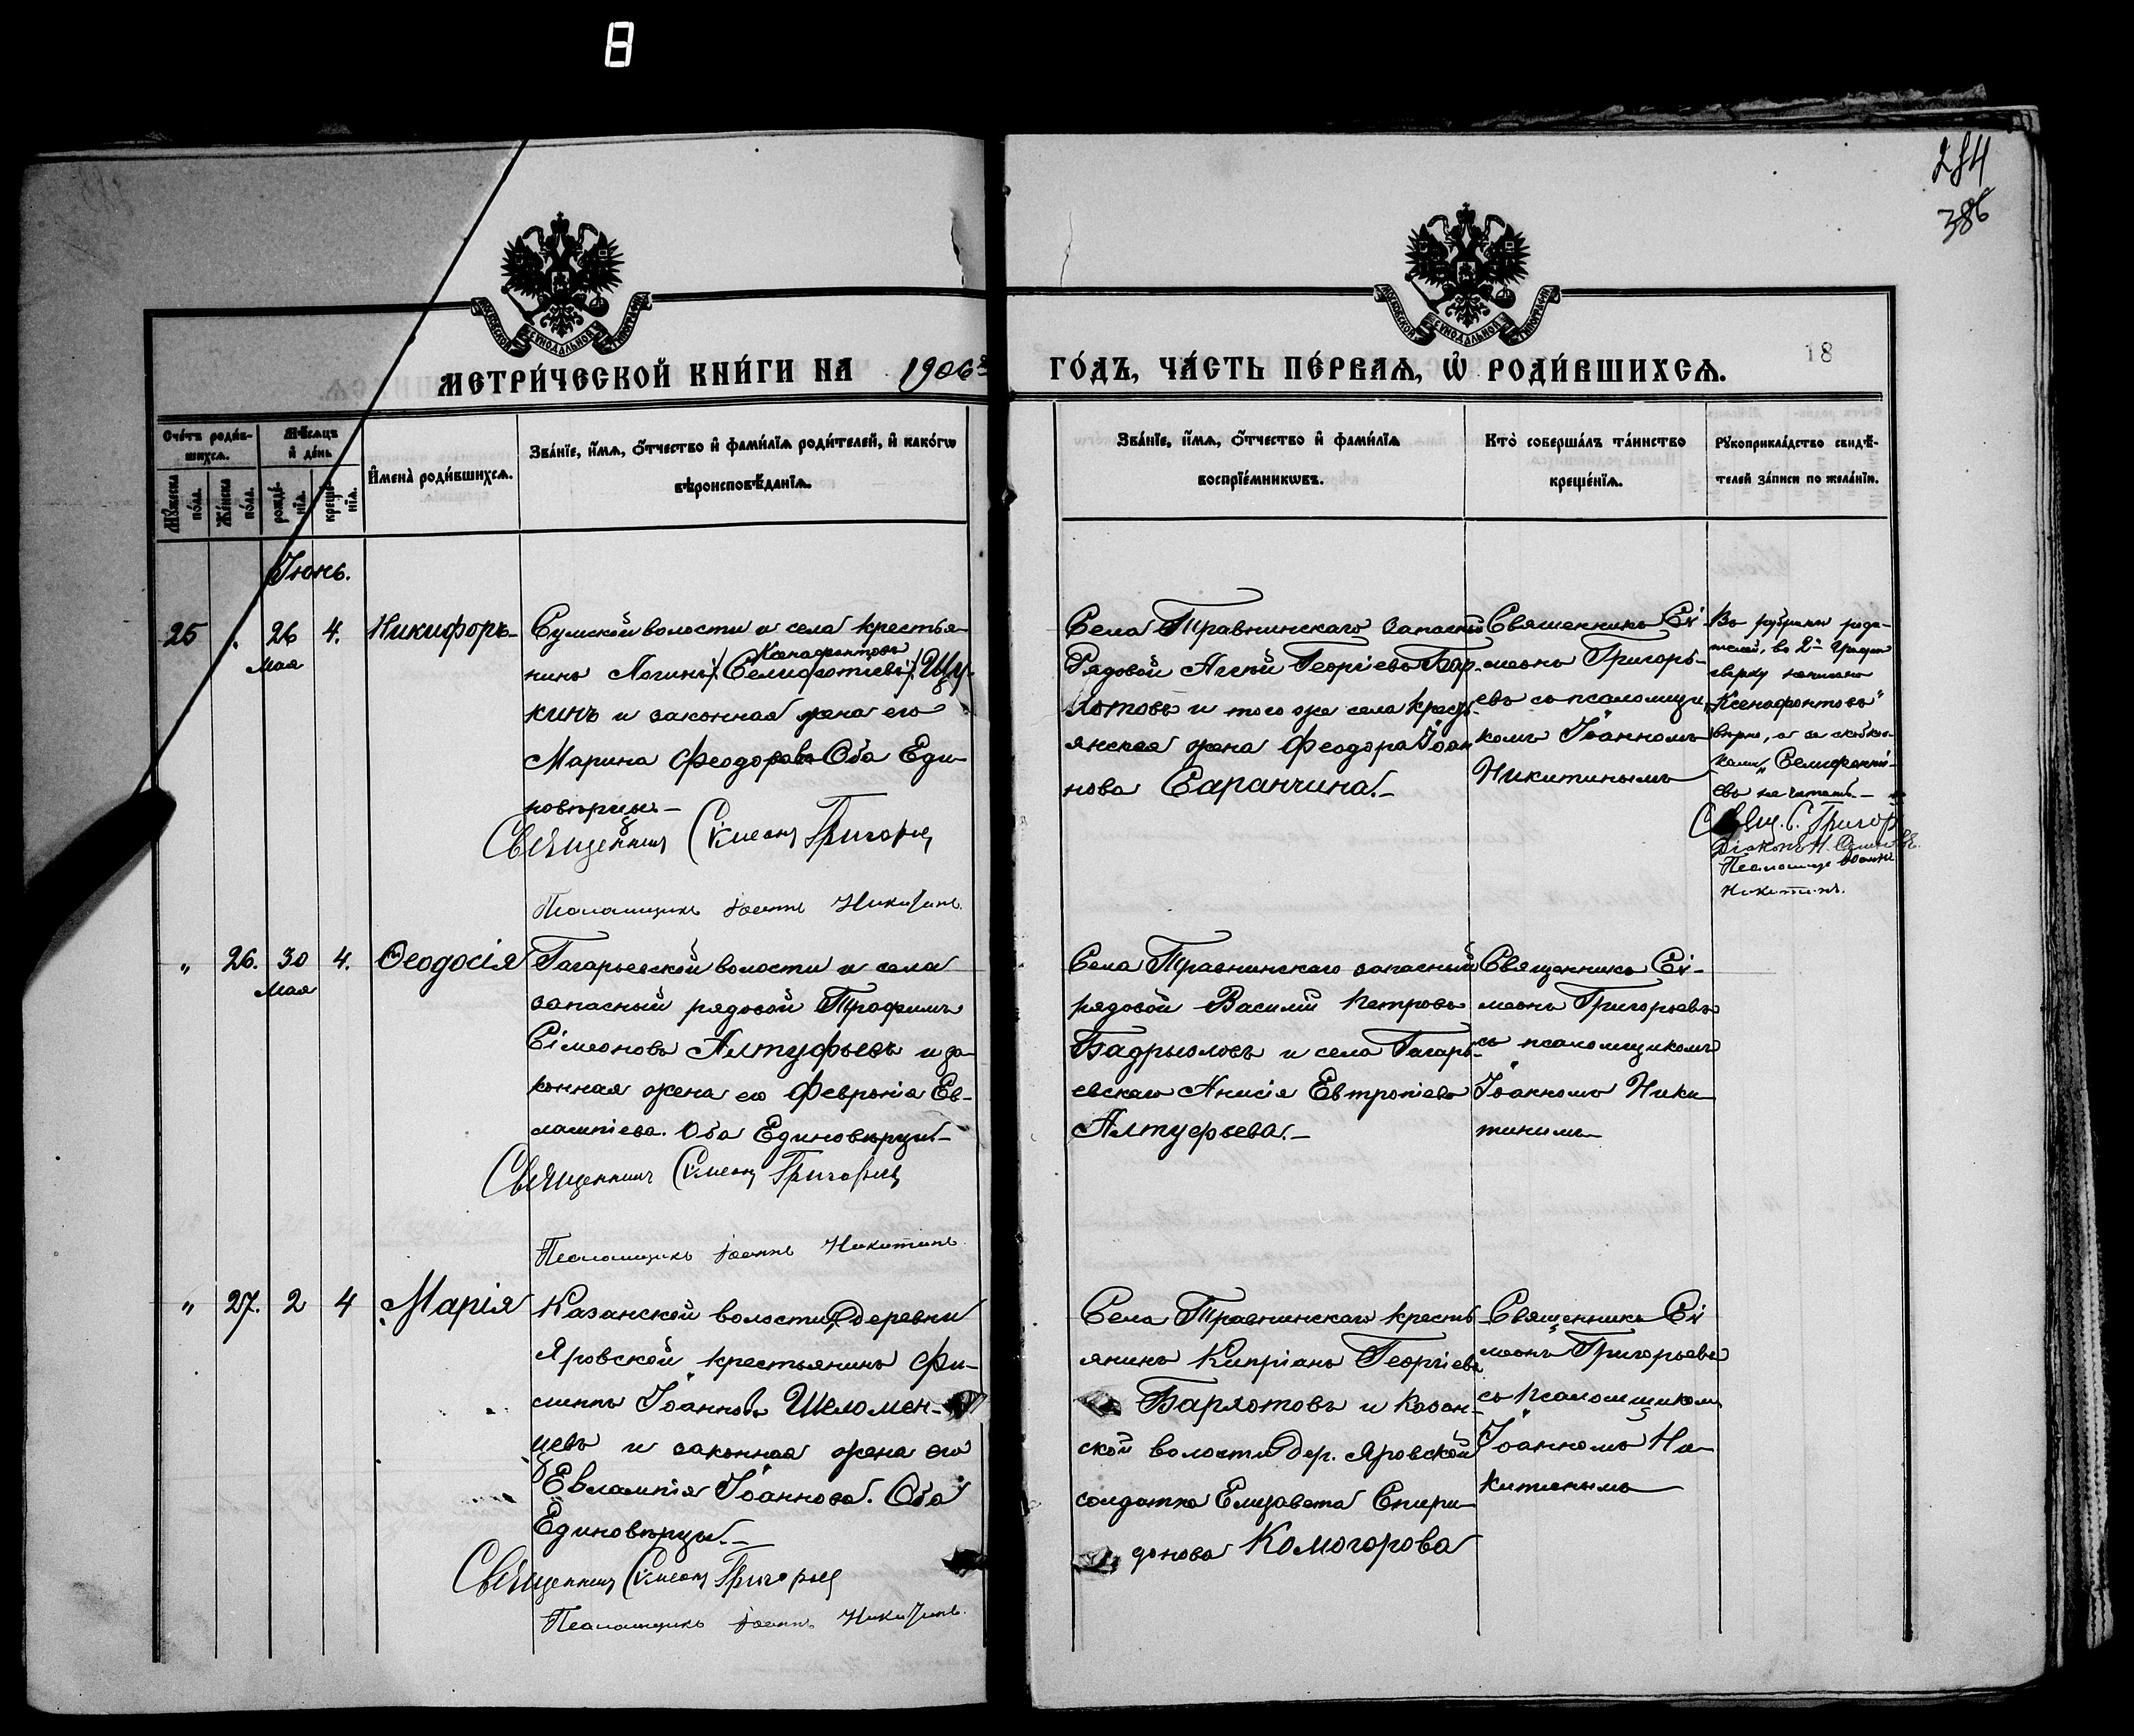 284
386
18
МОСКОВСКОЙ СѴНОДАЛЬНОЙ ТИПОГРАФІИ
МОСКОВСКОЙ СѴНОДАЛЬНОЙ ТИПОГРАФІИ
МЕТРИ́ЧЕСКОЙ КНИ́ГИ НА 1906й
ГО́ДЪ, ЧА́СТЬ ПЕ́РВАѦ, Ѡ҆ РОДИ́ВШИХСѦ.
Сче́тъ роди́в-
шихсѧ.
Мꙋ́жеска по́ла.
Же́нска по́ла.
Мѣ́сѧцъ
и҆ де́нь
рожде́-
нїѧ.
креще́-
нїѧ.
И҆мена̀ роди́вшихсѧ.
Зва́нїе, и҆́мѧ, ѻ҆́тчество и҆ фами́лїѧ роди́телей, и҆ како́гѡ
вѣроисповѣ́данїѧ.
Зва́нїе, и҆́мѧ, ѻ҆́тчество и҆ фами́лїѧ
воспрїе́мникѡвъ.
Кто̀ соверша́лъ та́инство
креще́нїѧ.
Рꙋкоприкла́дство свидѣ́-
телей за́писи по жела́нїю.
Іюнь.
25 „ 26 4. Никифоръ
Мая
Сумской волости и села крестья-
Ксенофонтовъ
нинъ Логинъ (Селифонтіевъ) Щу-
кинъ и законная жена его
Марина Феодорова Оба Еди-
новѣрцы.–
Священникъ Сімеонъ Григорьев
Псаломщикъ Іоаннъ Никитинъ.
Села Травнинскаго запасный
Рядовой Агѣй Георгіевъ Бар-
хотовъ и того же села кресть-
янская жена Феодора Іоан
нова Саранчина.–
Священникъ Сі
меонъ Григорь-
евъ съ псаломщи
комъ Іоанномъ
Никитинымъ
Въ рубрикѣ роди-
телей, во 2й графѣ
сверху написано
„Ксенофонтовъ“
вѣрно, а за скобоч-
ками „Селифонті-
евъ не читать.–
Свящ. С. Григор
Діаконъ Н.
Псаломщ. Іоаннъ
Никитинъ.
„ 26. 30 4. Ѳеодосія
Мая
Гагарьевской волости и села
запасный рядовой Трофимъ
Сімеоновъ Алтуфьевъ и за-
конная жена его Февронія Ев-
лампіева. Оба Единовѣрцы.–
Священникъ Сімеонъ Григорьев
Псаломщикъ Іоаннъ Никитинъ.
Села Травнинскаго запасный
рядовой Василій Петровъ
Бадрызловъ и села Гагарь-
евскаго Анисія Евтропіева
Алтуфьева.–
Священникъ Сі-
меонъ Григорьевъ
съ псаломщикомъ
Іоанномъ Ники
тинымъ
„ 27. 2 4 Марія
Казанской волости, деревни
Яровской крестьянинъ Фи-
липпъ Іоанновъ Шеломен-
цевъ и законная жена его
Евлампія Іоаннова. Оба
Единовѣрцы.–
Священникъ Сімеонъ Григорьев
Псаломщикъ Іоаннъ Никитинъ.
Села Травнинскаго кресть
янинъ Кипріанъ Георгіевъ
Бархотовъ и Казан-
ской волости дер. Яровской
солдатка Елизавета Спири-
донова Комогорова
Священникъ Сі
меонъ Григорьевъ
съ псаломщикомъ
Іоанномъ Ни-
китинымъ